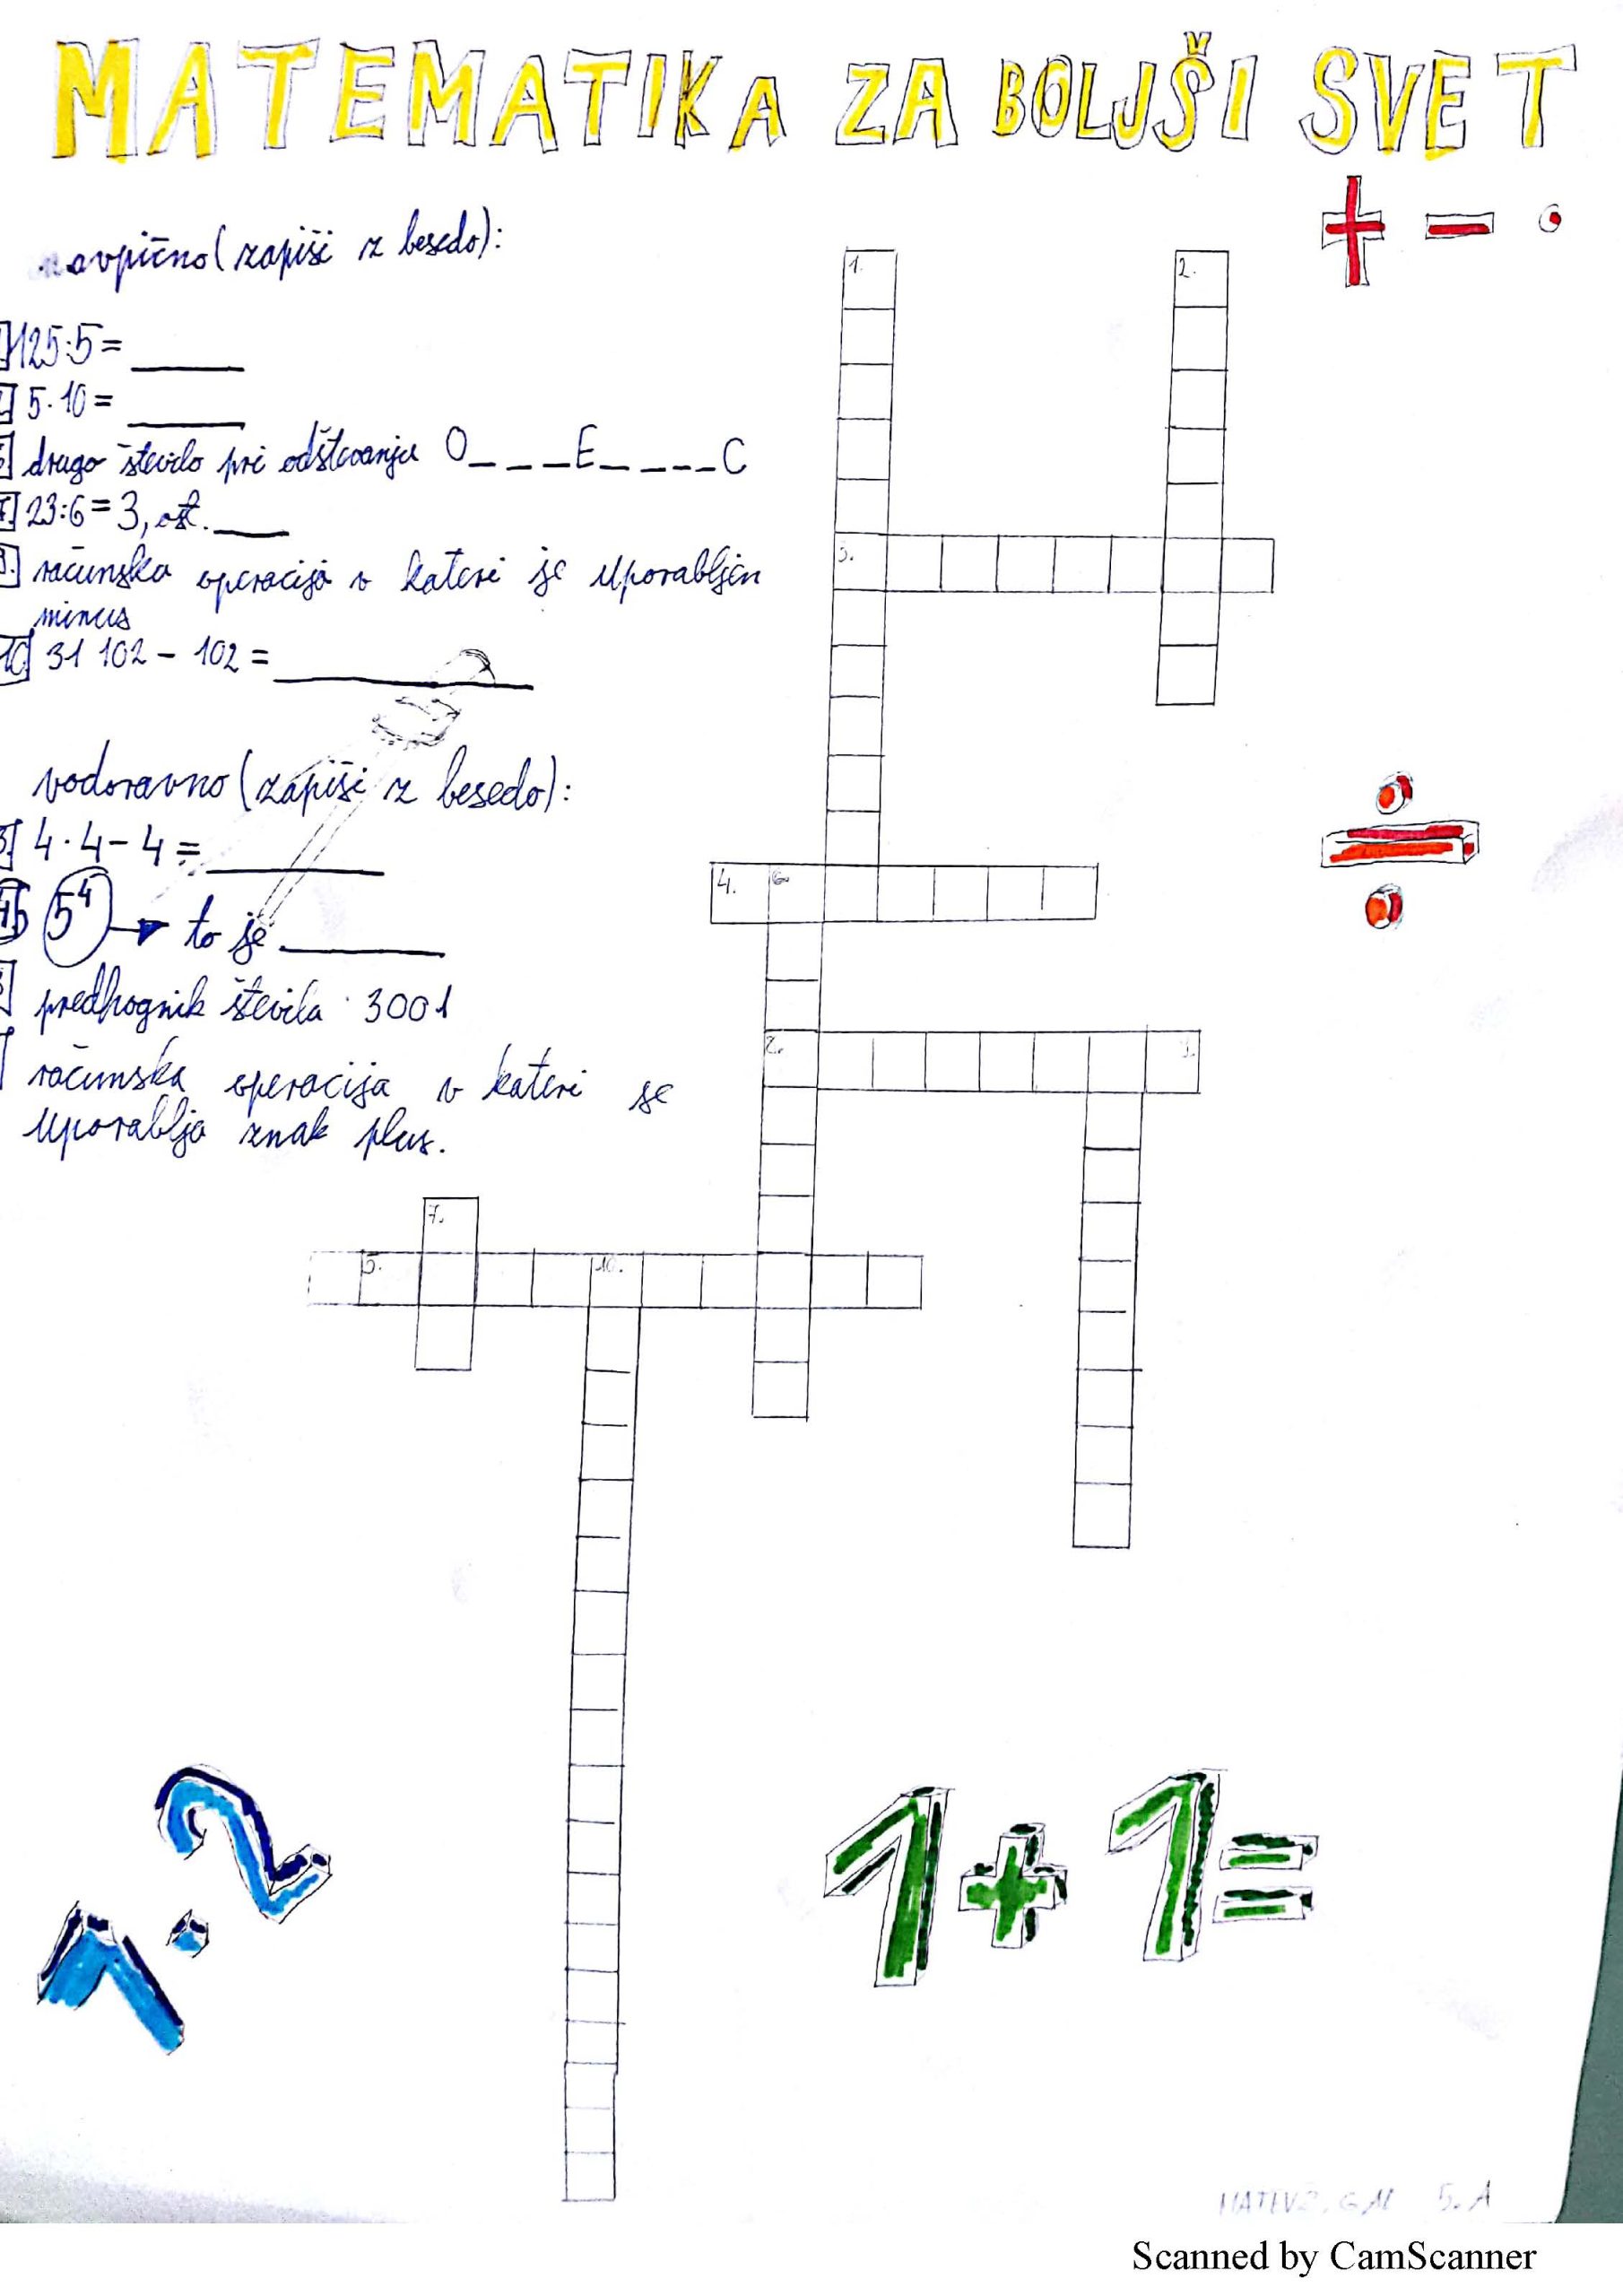 MATEMATIKA ZA BOLJŠI SVET
+ − ·
navpično (zapiši z besedo):
1. 2.
125:5= ____
5·10= ____
drugo število pri odštevanju O_ _ _E_ _ _ _C
23:6=3, ost. ___
3.
računska operacija v kateri je uporabljen
minus
10 31 102 − 102 = ________
vodoravno (zapiši z besedo):
4·4−4 = ______
4. 6.
5⁴ → to je ______
predhognik števila 3001
8. 9.
računska operacija v kateri se
uporablja znak plus.
7.
5. 10.
1·2
1+1=
5. A
Scanned by CamScanner